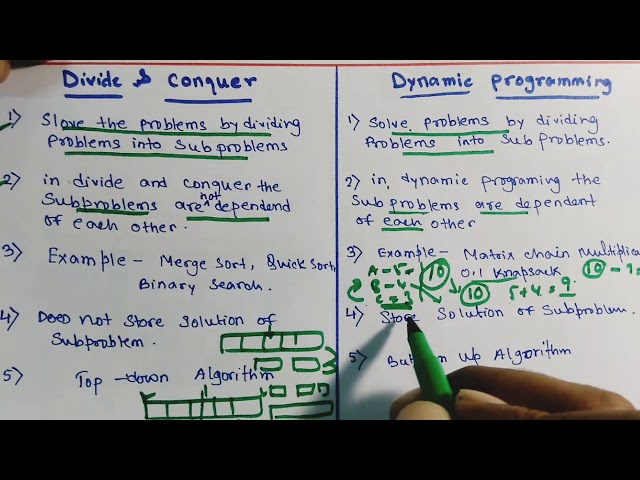 Divide & Conquer
1) Slove the problems by dividing
Problems into Subproblems
2) in divide and conquer the
not
Subproblems are ^ dependend
of each other.
3) Example - Merge Sort, Quick Sort,
Binary Search.
4) Does Not Store Solution of
Subproblem.
5) Top-down Algorithm
Dynamic Programming
1) Solve Problems by dividing
Problems into Sub Problems.
2) in dynamic programing the
Sub problems are dependent
of each other
3) Example - Matrix chain Multiplica
A - 5 - 10 0,1 Knapsack 10 - 9 =
B - 4
C = 3 10 5+4 = 9
4) Store Solution of Subproblem.
5) up Algorithm